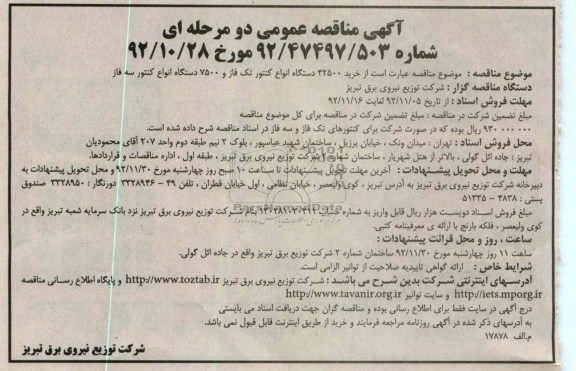 آگهی مناقصه عمومی دو مرحله ای
شماره ۹۲/۴۷۴۹۷/۵۰۳ مورخ ۹۲/۱۰/۲۸
موضوع مناقصه : موضوع مناقصه عبارت است از خرید ۴۲۵۰۰ دستگاه انواع کنتور تک فاز و ۷۵۰۰ دستگاه انواع کنتور سه فاز
دستگاه مناقصه گزار : شرکت توزیع نیروی برق تبریز
مهلت فروش اسناد : از تاریخ ۹۲/۱۱/۰۵ لغایت ۹۲/۱۱/۱۶
مبلغ تضمین شرکت در مناقصه : مبلغ تضمین شرکت در مناقصه برای کل موضوع مناقصه
۹۳۰ ۰۰۰ ۰۰۰ ریال بوده که در صورت شرکت برای کنتورهای تک فاز و سه فاز در اسناد مناقصه شرح داده شده است.
محل فروش اسناد : تهران : میدان ونک ، خیابان برزیل ، ساختمان شهید عباسپور ، بلوک ۲ نیم طبقه دوم واحد ۲۰۷ آقای محمودیان
تبریز : جاده ائل گولی ، بالاتر از هتل شهریار ، ساختمان شماره ۲ شرکت توزیع نیروی برق تبریز ، طبقه اول ، اداره مناقصات و قراردادها.
مهلت و محل تحویل پیشنهادات : آخرین مهلت تحویل پیشنهادات تا ساعت ۱۰ صبح روز چهارشنبه مورخ ۹۲/۱۱/۳۰ و محل تحویل پیشنهادات به
دبیرخانه شرکت توزیع نیروی برق تبریز به آدرس تبریز ، کوی ولیعصر ، خیابان نظامی ، اول خیابان قطران ، تلفن ۴۹ - ۳۳۲۸۹۴۶ دورنگار : ۳۳۲۸۹۵۰ صندوق
پستی : ۴۸۳۸ - ۵۱۳۳۵
مبلغ فروش اسناد دویست هزار ریال قابل واریز به شماره حساب بنام شرکت توزیع نیروی برق تبریز نزد بانک سرمایه شعبه تبریز واقع در
کوی ولیعصر ، فلکه بارنج با ارائه ی معرفینامه کتبی.
ساعت ، روز و محل قرائت پیشنهادات :
ساعت ۱۱ روز چهارشنبه مورخ ۹۲/۱۱/۳۰ ساختمان شماره ۲ شرکت توزیع نیروی برق تبریز واقع در جاده ائل گولی.
شرایط خاص : ارائه گواهی تأییدیه صلاحیت از توانیر الزامی است.
آدرسهای اینترنتی شرکت بدین شرح می باشد : شرکت توزیع نیروی برق تبریز http://www.toztab.ir و پایگاه اطلاع رسانی مناقصه
http://iets.mporg.ir و سایت توانیر http://www.tavanir.org.ir
درج آگهی در سایت فقط برای اطلاع رسانی بوده و مناقصه گران جهت دریافت اسناد می بایستی
به آدرسهای ذکر شده در آگهی روزنامه مراجعه فرمایند و خرید از طریق اینترنت قابل قبول نمی باشد.
م.الف ۱۷۸۷۸
شرکت توزیع نیروی برق تبریز